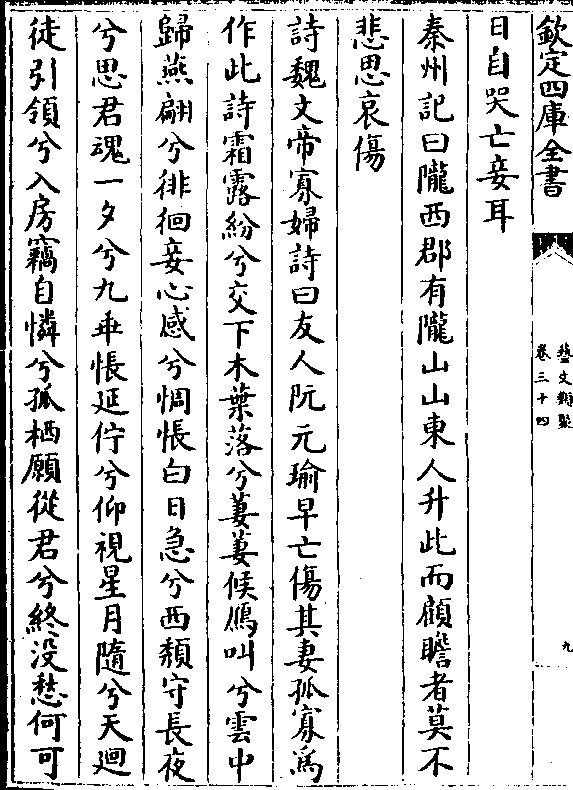 欽定四庫全書
藝文類聚
卷三十四
九
日自哭亡妾耳
秦州記曰隴西郡有隴山山東人升此而顧瞻者莫不
悲思哀傷
詩魏文帝寡婦詩曰友人阮元瑜早亡傷其妻孤寡為
作此詩霜露紛兮交下木葉落兮萋萋候鴈叫兮雲中
歸燕翩兮徘徊妾心感兮惆悵白日急兮西頹守長夜
兮思君魂一夕兮九乖悵延佇兮仰視星月隨兮天迴
徒引領兮入房竊自憐兮孤栖願從君兮終没愁何可